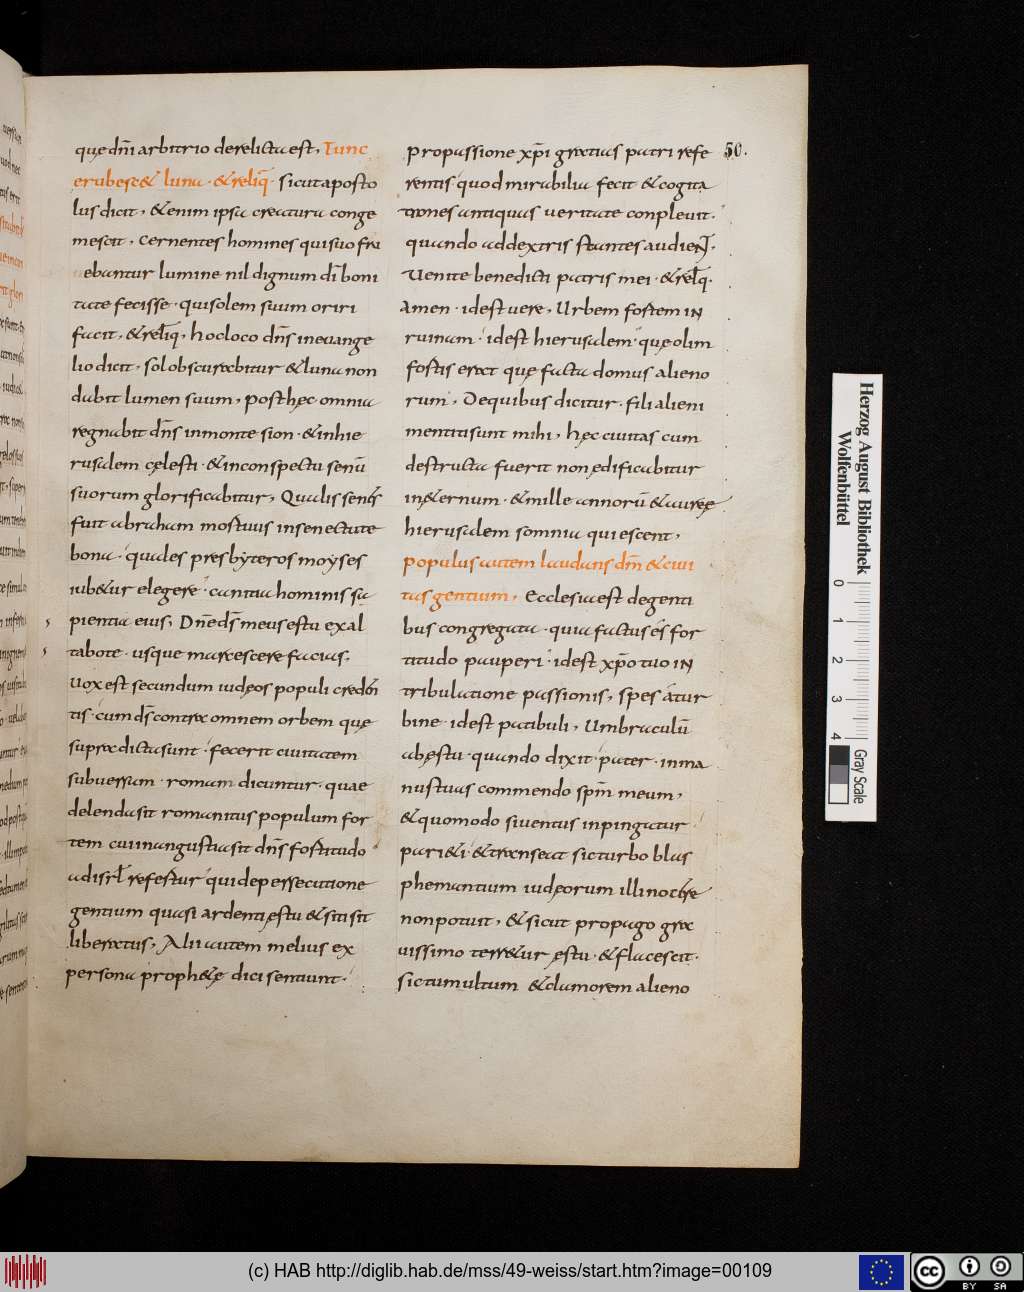 quę dn̄i arbitrio derelicta est, Tunc
erubesc& luna · & reliq̄ · sicut aposto
lus dicit, & enim ipsa creatura conge
mescit, cernentes homines qui suo fru
ebantur lumine nil dignum dī boni
tate fecisse · qui solem suum oriri
facit, & reliq̄, hoc loco dn̄s in euange
lio dicit, sol obscurabitur & luna non
dabit lumen suum, post hęc omnia
regnabit dn̄s in monte sion · & in hie
rusalem cęlesti · & in conspectu senū
suorum glorificabitur, Qualis
fuit abraham mostuus in senectute
bona · quales presbyteros moyses
iub&ur elegere · cantica hominis sa
pientia eius, Dn̄e ds̄ meus es tu exal
tabo te · usque marcescere facias,
Uox est secundum iudęos populi
tis · cum ds̄ contra omnem orbem quę
supra dicta sunt · fecerit ciuitatem
subuersam · romam dicuntur · quae
delenda sit romanitus populum for
tem cui in angustia sit dn̄s fostitudo
ad isrl̄ refestur qui de persecutione
gentium quasi ardenti ęstu & siti sit
liberatus, Alii autem melius ex
persona proph&ę dici sentiunt ·
pro passione xp̄i gratias patri refe
rentis quod mirabilia fecit & cogita
tiones antiquas ueritate conpleuit.
quando ad dextris stantes
Uenite benedicti patris mei · & rel̄q.
Amen · id est uere, Urbem fostem in
ruinam · id est hierusalem quę olim
fostis erat quę facta domus alieno
rum, De quibus dicitur · fili alieni
mentiti sunt mihi, hęc ciuitas cum
destructa fuerit non ędificabitur
in &ernum · & mille annorū & aureę
hierusalem somnia quiescent,
populus autem laudans dm̄ & ciui
tas gentium, Ecclesia est de genti
bus congregata · quia factus es for
titudo pauperi · id est xp̄o tuo in
tribulatione passionis, spes
bine · id est patibuli, Umbraculū
ab ęstu · quando dixit pater · in ma
nus tuas commendo spm̄ meum,
& quomodo si uentus inpingatur
pari&i · & transeat sic turbo blas
phemantium iudęorum illi
non potuit, & sicut propago gra
uissimo terr&ur ęstu · & flacescit ·
sic tumultum & clamorem alieno
50.
Herzog August Bibliothek
Wolfenbüttel
0 1 2 3 4
Gray Scale
(c) HAB http://diglib.hab.de/mss/49-weiss/start.htm?image=00109
cc
BY SA